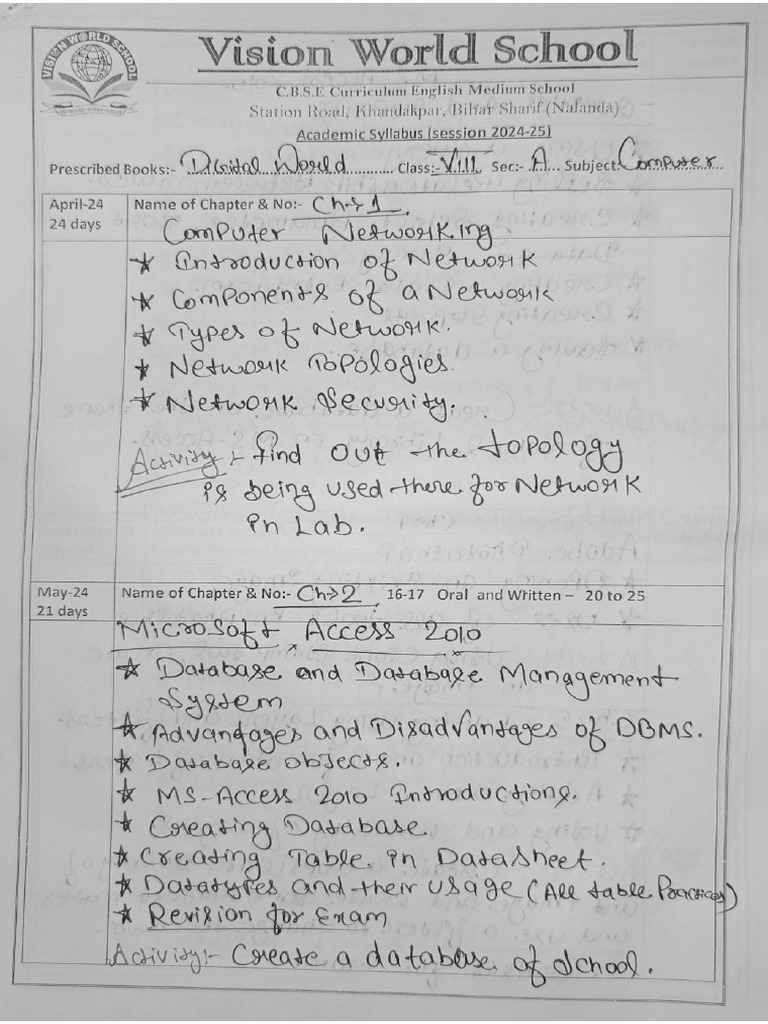 VISION WORLD SCHOOL
Vision World School
C.B.S.E Curriculum English Medium School
Station Road, Khandakpar, Bihar Sharif (Nalanda)
Academic Syllabus (session 2024-25)
Prescribed Books:- Digital World Class:- VIII Sec:- A Subject: Computer
April-24 Name of Chapter & No:- Ch→1
24 days
Computer Networking.
* Introduction of Network
* Components of a Network
* Types of Network.
* Network Topologies.
* Network Security.
Activity :- find out the topology
is being used there for Network
in Lab.
May-24 Name of Chapter & No:- Ch→2 16-17 Oral and Written – 20 to 25
21 days
Microsoft Access 2010
* Database and Database Management
System
* Advantages and Disadvantages of DBMS.
* Database objects.
* MS-Access 2010 Introductions.
* Creating Database.
* Creating Table in Datasheet.
* Datatypes and their usage (All table Practices)
* Revision for Exam
Activity:- Create a database of School.